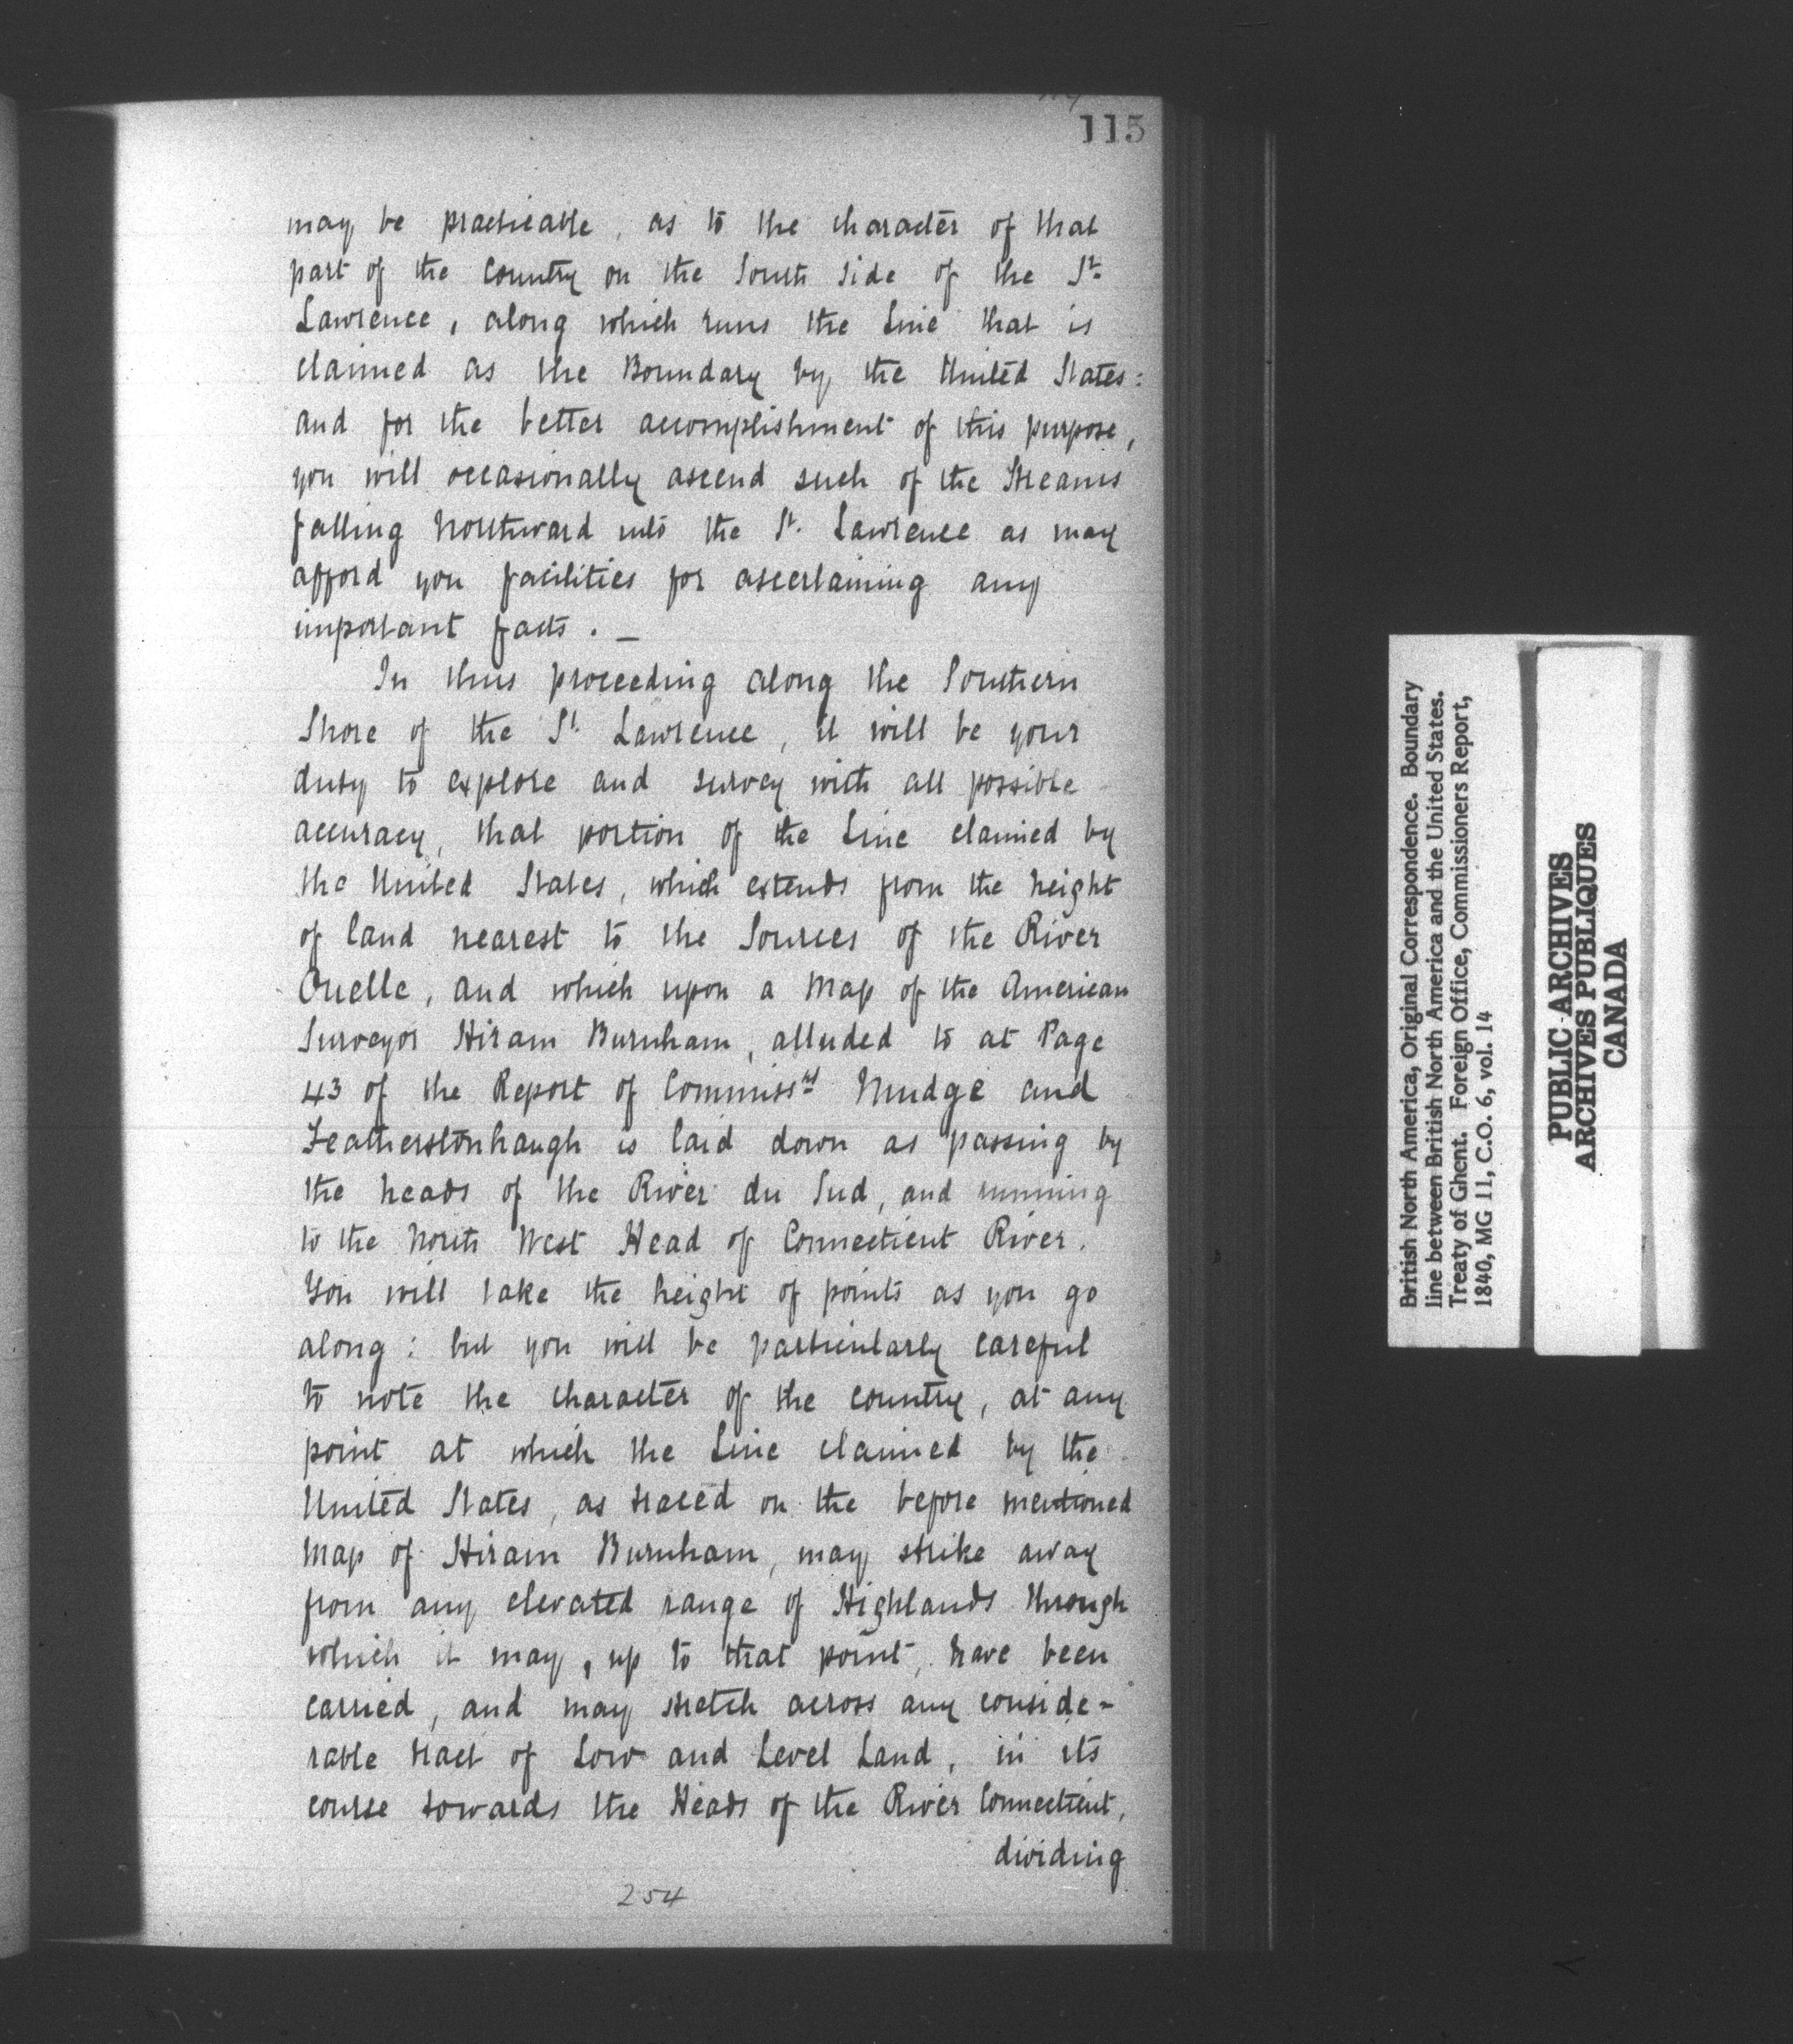 115
may be practicable, as to the character of that
part of the Country on the South Side of the St.
Lawrence, along which runs the Line that is
claimed as the Boundary by the United States:
and for the better accomplishment of this purpose,
you will occasionally ascend such of the Streams
falling Northward into the St. Lawrence as may
afford you facilities for ascertaining any
important facts. _
In thus proceeding along the Southern
Shore of the St. Lawrence, it will be your
duty to explore and survey with all possible
accuracy, that portion of the Line claimed by
the United States, which extends from the height
of land nearest to the Sources of the River
Ouelle, and which upon a Map of the American
Surveyor Hiram Burnham, alluded to at Page
43 of the Report of Commissrs Mudge and
Featherstonhaugh is laid down as passing by
the heads of the River du Sud, and running
to the North West Head of Connecticut River.
You will take the height of points as you go
along: but you will be particularly careful
to note the character of the country, at any
point at which the Line claimed by the
United States, as traced on the before mentioned
Map of Hiram Burnham, may strike away
from any elevated range of Highlands through
which it may, up to that point, have been
carried, and may stretch across any conside=
rable tract of Low and Level Land, in its
course towards the Heads of the River Connecticut,
dividing
254
British North America, Original Correspondence. Boundary
line between British North America and the United States.
Treaty of Ghent. Foreign Office, Commissioners Report,
1840, MG 11, C.O. 6, vol. 14
PUBLIC ARCHIVES
ARCHIVES PUBLIQUES
CANADA